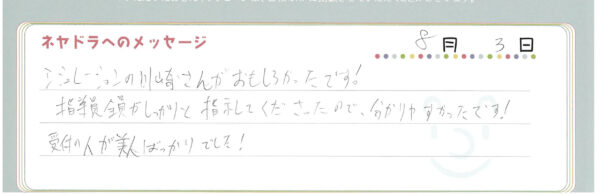 ネヤドラへのメッセージ
8月 3日
シミュレーションの川崎さんがおもしろかったです!
指導員全員がしっかりと指示してくださったので、分かりやすかったです!
受付の人が美人ばっかりでした!